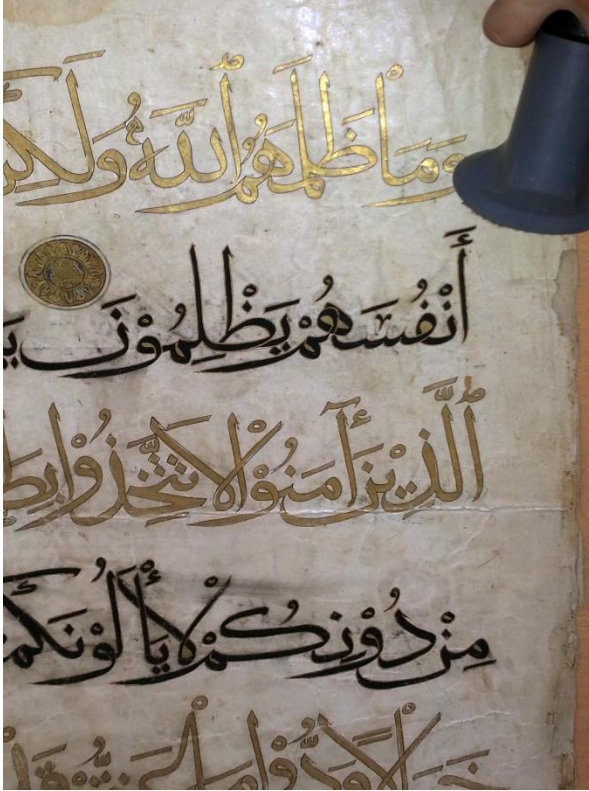 وَمَا ظَلَمَهُمُ ٱللَّهُ وَلَٰكِنْ
أَنْفُسَهُمْ يَظْلِمُوْنَ
ٱلَّذِيْنَ أٰمَنُوْا لَا تَتَّخِذُوْا
مِنْ دُوْنِكُمْ لَا يَأْلُوْنَكُمْ
خَبَالًا وَدُّوْا مَا عَنِتُّوْا قَدْ